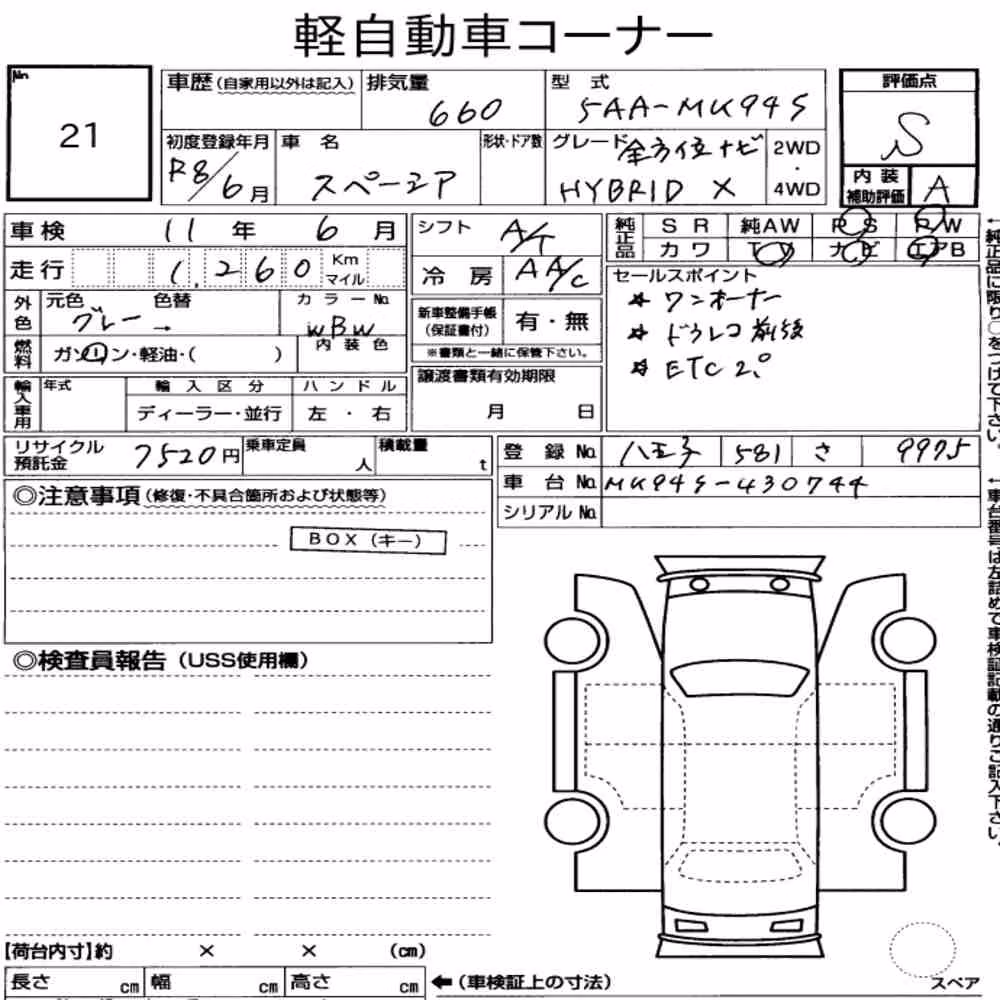 軽自動車コーナー
No. 21
車歴 (自家用以外は記入)
排気量 660
型式 5AA-MK94S
評価点 S
初度登録年月 R8/6月
車名 スペーシア
形状・ドア数
グレード 全方位ナビ HYBRID X
2WD・4WD
内装補助評価 A
車検 11年 6月
シフト A/T
純正品 SR 純AW PS PW
カワ TV ナビ エアB
走行 1,260 Km マイル
冷房 AA/C
外色 元色 グレー → 色替
カラーNo. WBW
内装色
新車整備手帳(保証書付) 有・無
※書類と一緒に保管下さい。
セールスポイント
* ワンオーナー
* ドラレコ前後
* ETC2.0
燃料 ガソリン・軽油・( )
輸入車用 年式 輸入区分 ハンドル
ディーラー・並行 左・右
譲渡書類有効期限
月 日
リサイクル預託金 7520円
乗車定員 人
積載量 t
登録No. 八王子 581 さ 9975
車台No. MK94S-430744
シリアルNo.
◎注意事項(修復・不具合箇所および状態等)
BOX(キー)
◎検査員報告(USS使用欄)
【荷台内寸】約 × × (cm)
長さ cm 幅 cm 高さ cm
←(車検証上の寸法)
スペア
←純正品に限り○をつけて下さい。
←車台番号は左詰めで車検証記載の通りご記入下さい。